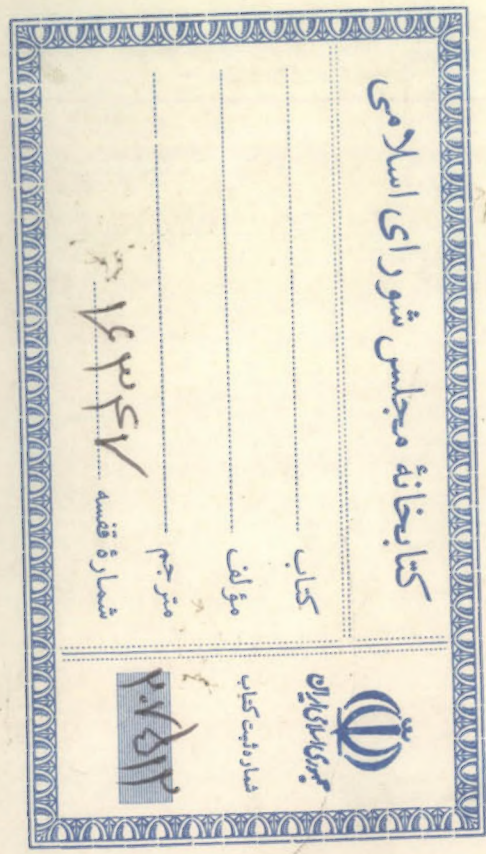 کتابخانهٔ مجلس شورای اسلامی
کتاب
مؤلف
مترجم
شمارهٔ قفسه ۱۶۳۴۷
جمهوری اسلامی ایران
شماره ثبت کتاب
۲۰۷۵۱۲